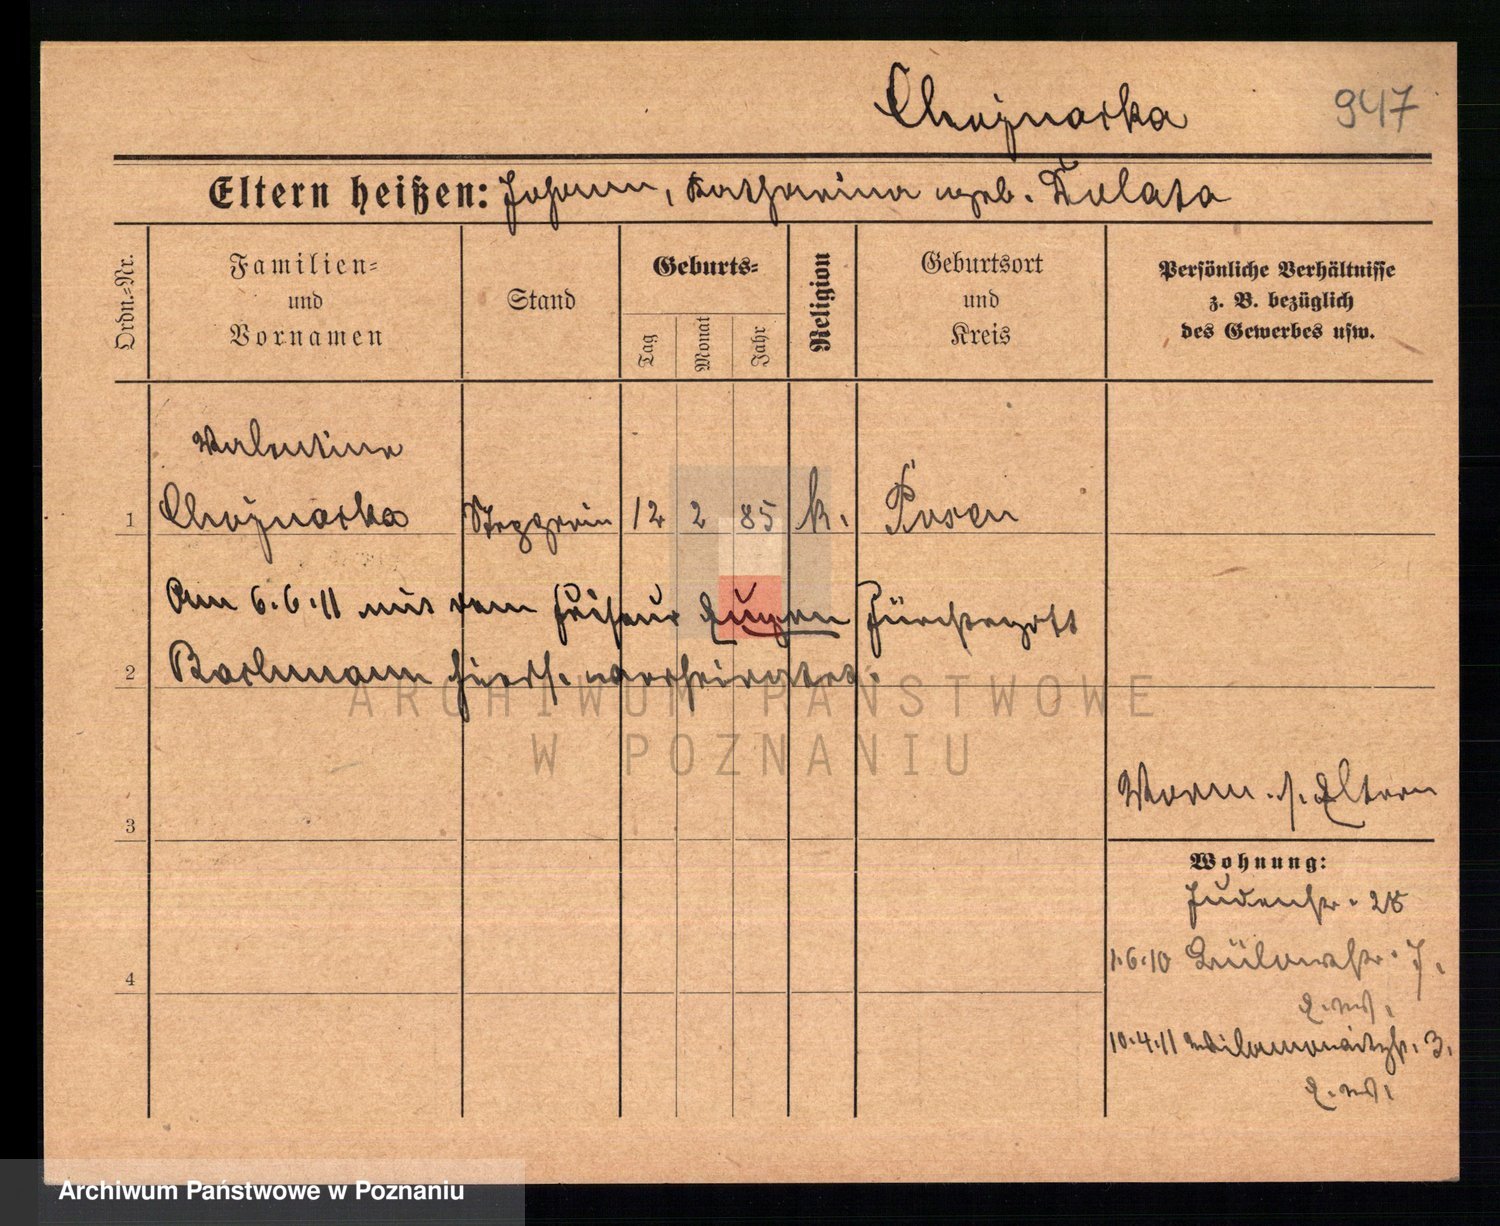 Chojnacka 947
Eltern heißen: Johann, Katharina geb. Tulata
Ordn.=Nr.
Familien=
und
Vornamen
Stand
Geburts=
Tag
Monat
Jahr
Religion
Geburtsort
und
Kreis
Persönliche Verhältnisse
z. B. bezüglich
des Gewerbes usw.
Valentine
1 Chojnacka Stepperin 12 2 85 k. Posen
Am 6.6.11 mit dem Friseur Eugen Fürchtegott
2 Bachmann hiers. verheiratet.
ARCHIWUM PAŃSTWOWE
W POZNANIU
3
Worm. s. Eltern
Wohnung:
Judenstr. 28
1.6.10 Bülowstr. 7,
4
10.4.11 Wilamowitzstr. 3.
Archiwum Państwowe w Poznaniu